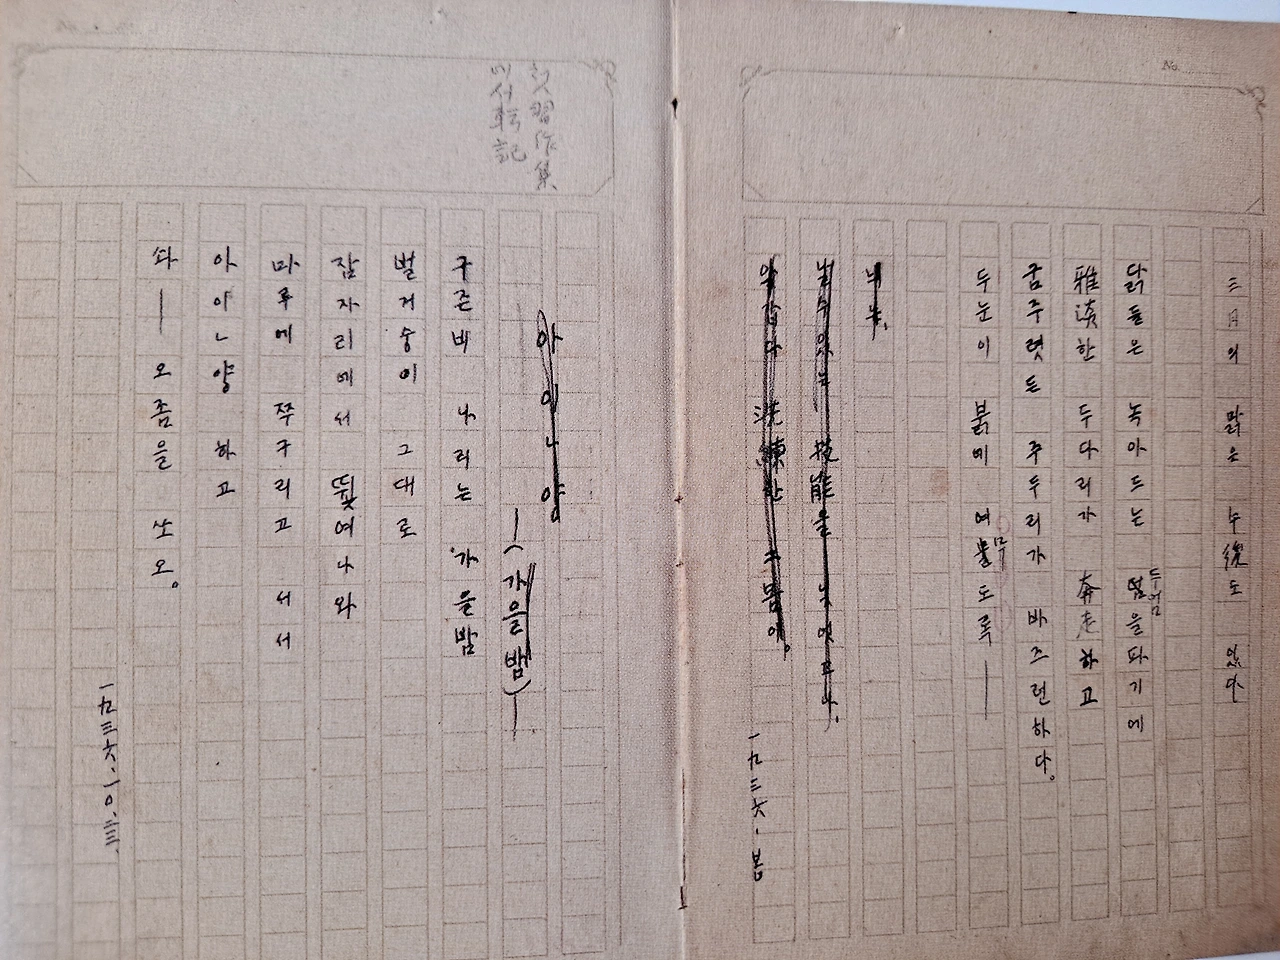 No.
三月의 맑은 午後도 있다
닭들은 녹아드는 두엄을파기에
雅淡한 두다리가 奔走하고
굼주렷든 주두리가 바즈런하다。
두눈이 붉에 여무도록——
날수있는 技能을 닞엇고나,
洗練한 그몸이。
一九三六. 봄
첫習作集
에서轉記
아이ㄴ양
—(가을밤)—
구즌비 나리는 가을밤
벌거숭이 그대로
잠자리에서 뛰여나와
마루에 쭈구리고 서서
아이ㄴ양 하고
솨— 오줌을 쏘오。
一九三六.一〇.二三.